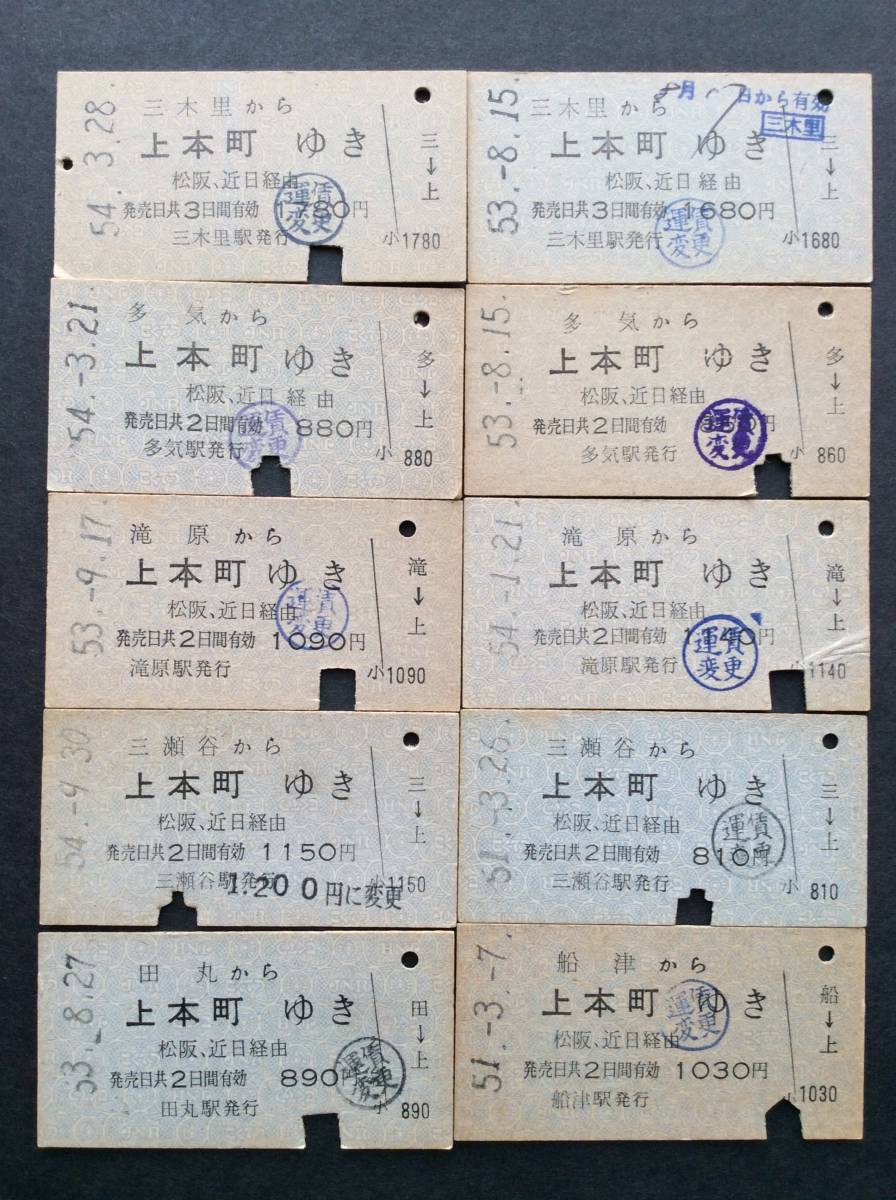 54. 3.28
三木里から
上本町 ゆき
松阪、近日経由
発売日共3日間有効 1780円
三木里駅発行
運賃
変更
三→上
小1780
53.-8.15.
8月17日から有効
三木里
三木里から
上本町 ゆき
松阪、近日経由
発売日共3日間有効 1680円
三木里駅発行
運賃
変更
三→上
小1680
54.-3.21
多気から
上本町 ゆき
松阪、近日経由
発売日共2日間有効 880円
多気駅発行
運賃
変更
多→上
小 880
53.-8.15.
多気から
上本町 ゆき
松阪、近日経由
発売日共2日間有効 860円
多気駅発行
運賃
変更
多→上
小 860
53.-9.17.
滝原から
上本町 ゆき
松阪、近日経由
発売日共2日間有効 1090円
滝原駅発行
運賃
変更
滝→上
小1090
54.-1.21.
滝原から
上本町 ゆき
松阪、近日経由
発売日共2日間有効 1140円
滝原駅発行
運賃
変更
滝→上
小1140
54.-9.30
三瀬谷から
上本町 ゆき
松阪、近日経由
発売日共2日間有効 1150円
三瀬谷駅発行
1.200円に変更
三→上
小1150
51.-3.26.
三瀬谷から
上本町 ゆき
松阪、近日経由
発売日共2日間有効 810円
三瀬谷駅発行
運賃
変更
三→上
小 810
53.-8.27
田丸から
上本町 ゆき
松阪、近日経由
発売日共2日間有効 890円
田丸駅発行
運賃
変更
田→上
小 890
51.-3.-7.
船津から
上本町 ゆき
松阪、近日経由
発売日共2日間有効 1030円
船津駅発行
運賃
変更
船→上
小1030